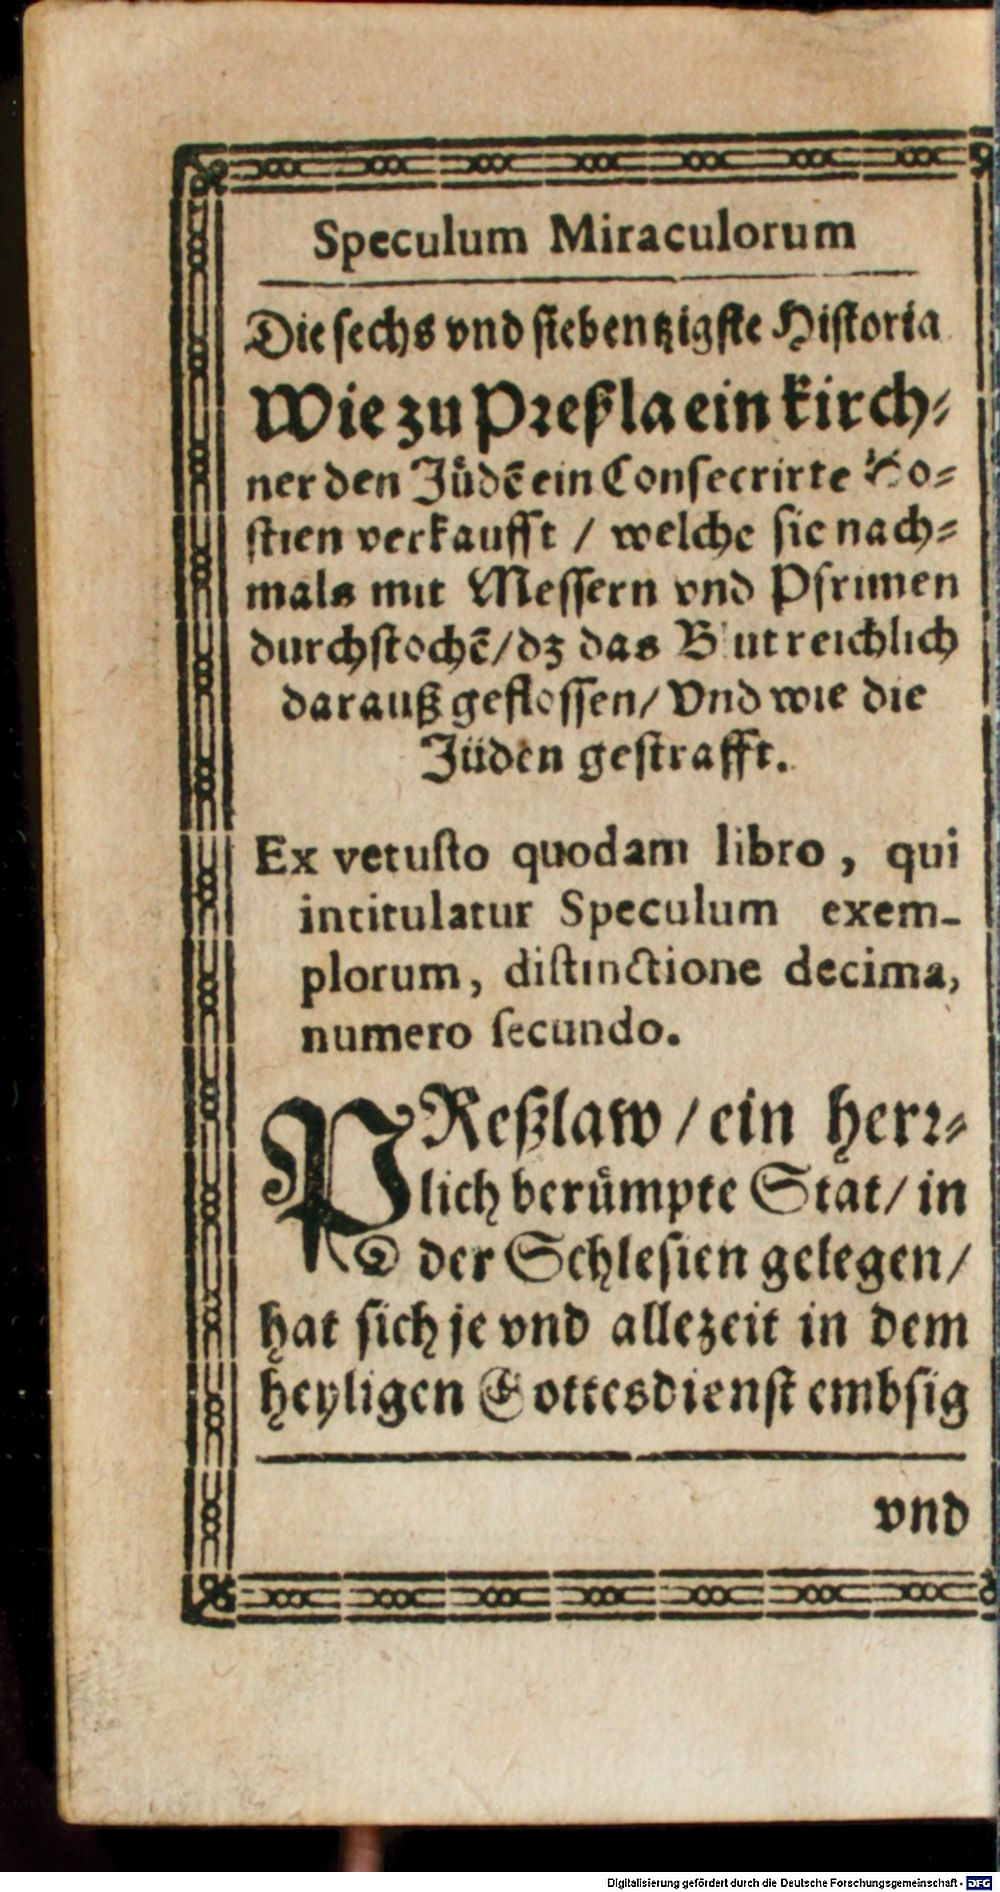 Speculum Miraculorum
Die sechs vnd siebentzigste Historia
Wie zu Preßla ein kirch⸗
ner den Jůdē ein Consecrirte Ho⸗
stien verkaufft / welche sie nach⸗
mals mit Messern vnd Pfrimen
durchstochē/dz das Blut reichlich
darauß geflossen/ Vnd wie die
Jüden gestrafft.
Ex vetuſto quodam libro, qui
intitulatur Speculum exem-
plorum, diſtinctione decima,
numero ſecundo.
PReßlaw / ein herr⸗
lich berůmpte Stat/ in
der Schlesien gelegen/
hat sich je vnd allezeit in dem
heyligen Gottesdienst embsig
vnd
Digitalisierung gefördert durch die Deutsche Forschungsgemeinschaft - DFG